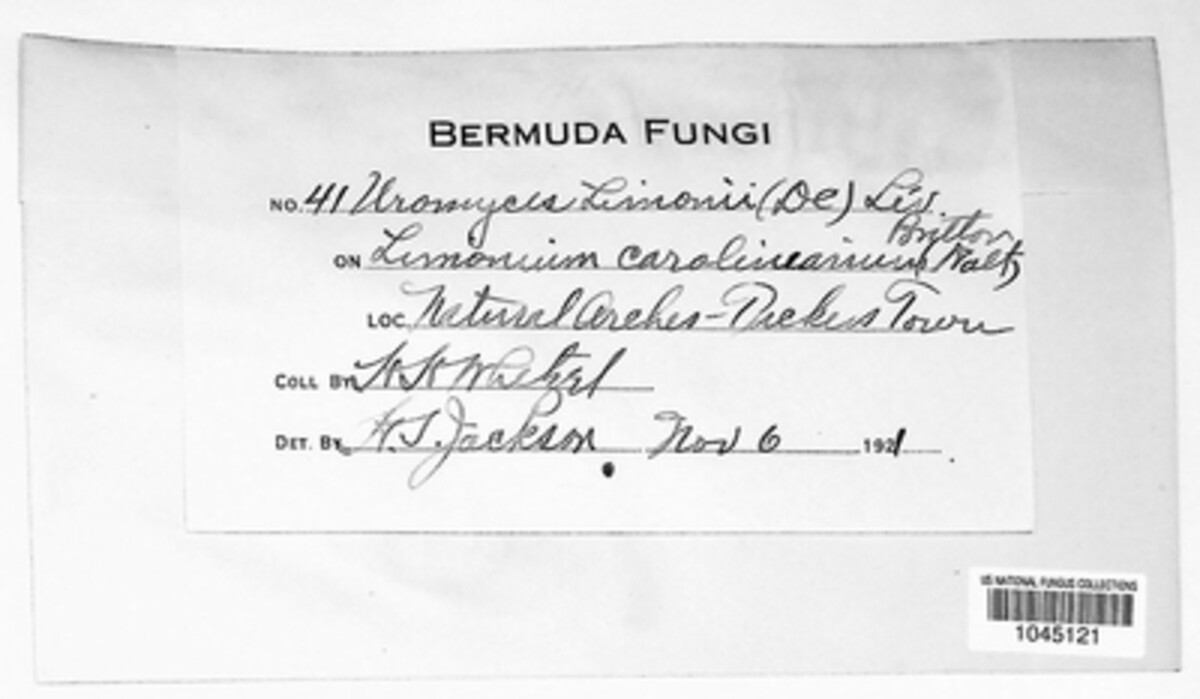 BERMUDA FUNGI
NO. 41 Uromyces Limonii (DC) Lév.
ON Limonium carolinianum (Walt) Britton
LOC. Natural Arches - Tuckers Town
COLL BY H H Whetzel
DET. BY H. S. Jackson Nov 6 1921
US NATIONAL FUNGUS COLLECTIONS
1045121